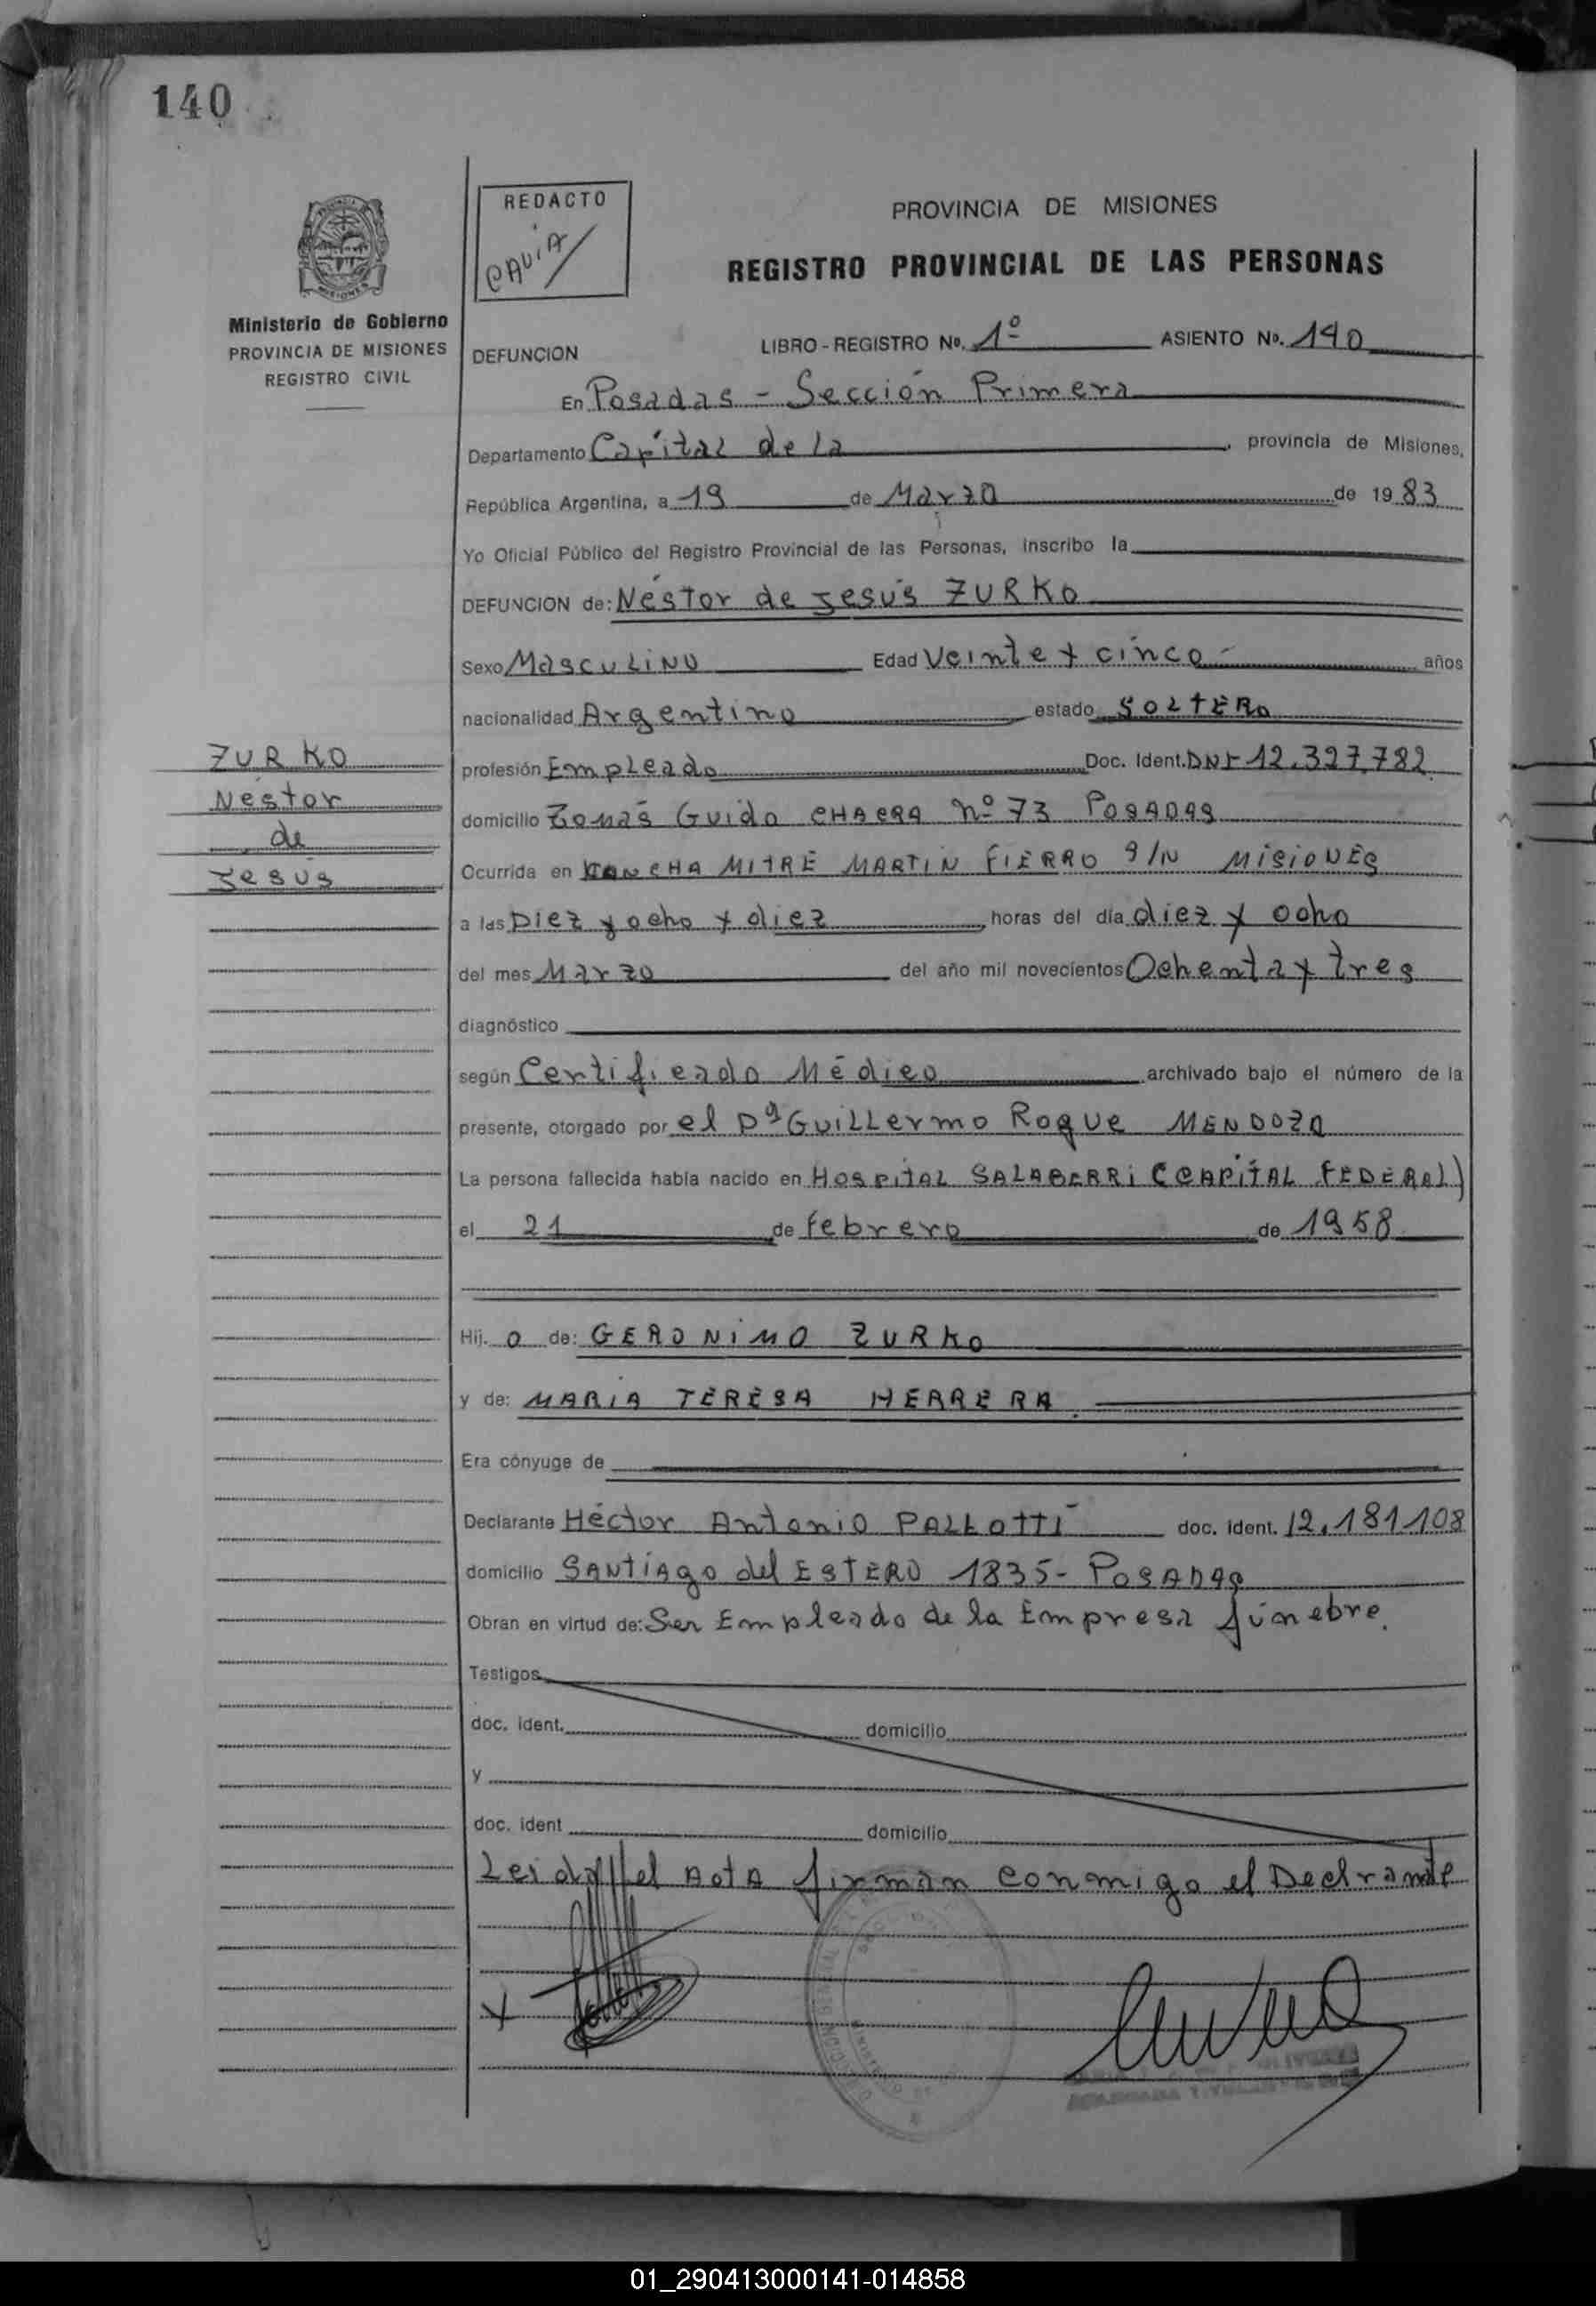 140
REDACTO
CAVIA
PROVINCIA DE MISIONES
REGISTRO PROVINCIAL DE LAS PERSONAS
Ministerio de Gobierno
PROVINCIA DE MISIONES
REGISTRO CIVIL
DEFUNCION LIBRO - REGISTRO No. 1º ASIENTO No. 140
En Posadas - Sección Primera
Departamento Capital de la , provincia de Misiones,
República Argentina, a 19 de Marzo de 1983
Yo Oficial Público del Registro Provincial de las Personas, inscribo la
DEFUNCION de: Néstor de Jesús ZURKO
Sexo Masculino Edad Veinte y cinco - años
nacionalidad Argentino estado SOLTERO
ZURKO
Nestor
de
Jesús
profesión Empleado Doc. Ident. DNI 12.327.782
domicilio Tomás Guido CHACRA nº 73 POSADAS
Ocurrida en CANCHA MITRE MARTIN FIERRO S/N MISIONES
a las Diez y ocho y diez horas del día diez y ocho
del mes Marzo del año mil novecientos Ochenta y tres
diagnóstico
según Certificado Médico archivado bajo el número de la
presente, otorgado por el Dr Guillermo Roque MENDOZA
La persona fallecida había nacido en Hospital SALABERRI (CAPITAL FEDERAL)
el 21 de febrero de 1958
Hij. o de: GERONIMO ZURKO
y de: MARIA TERESA HERRERA
Era cónyuge de
Declarante Héctor Antonio PALLOTTI doc. ident. 12.181.108
domicilio SANTIAGO del ESTERO 1835 - POSADAS
Obran en virtud de: Ser Empleado de la Empresa fúnebre.
Testigos
doc. ident. domicilio
y
doc. ident domicilio
Leida el Acta firman conmigo el Declrante
01_290413000141-014858